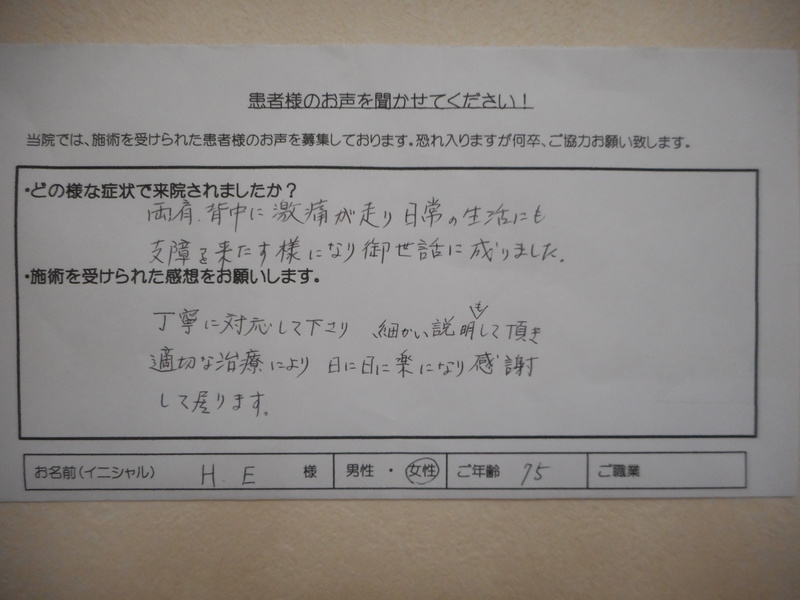 患者様のお声を聞かせてください！
当院では、施術を受けられた患者様のお声を募集しております。恐れ入りますが何卒、ご協力お願い致します。
・どの様な症状で来院されましたか？
両肩、背中に激痛が走り日常の生活にも
支障を来たす様になり御世話に成りました。
・施術を受けられた感想をお願いします。
丁寧に対応して下さり 細かい説明もして頂き
適切な治療により 日に日に楽になり感謝
して居ります。
お名前（イニシャル） H.E 様 男性 ・ 女性 ご年齢 75 ご職業